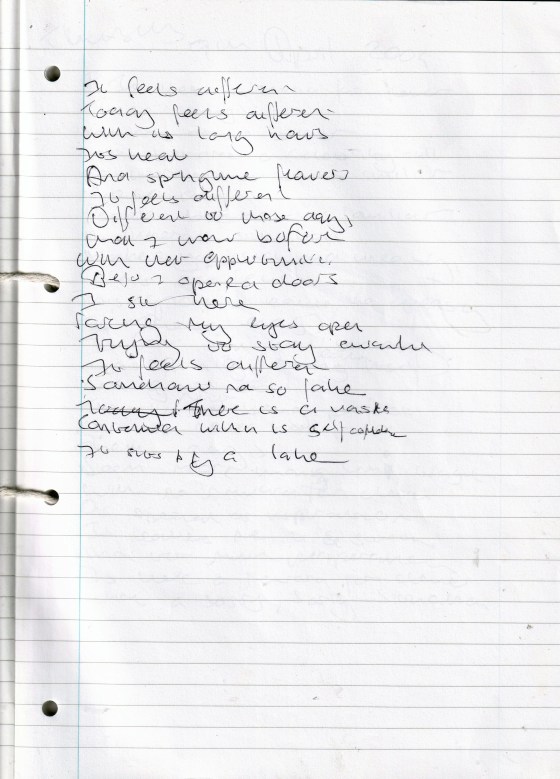 It feels different
Today feels different
With its long hours
Its heat
And springtime flowers
It feels different
Different to those days
That I knew before
With new
Before I opened doors
I sit here
Forcing my eyes open
Trying to stay awake
It feels different
Somehow not so fake
Today there is a
Container which is
It sits by a lake